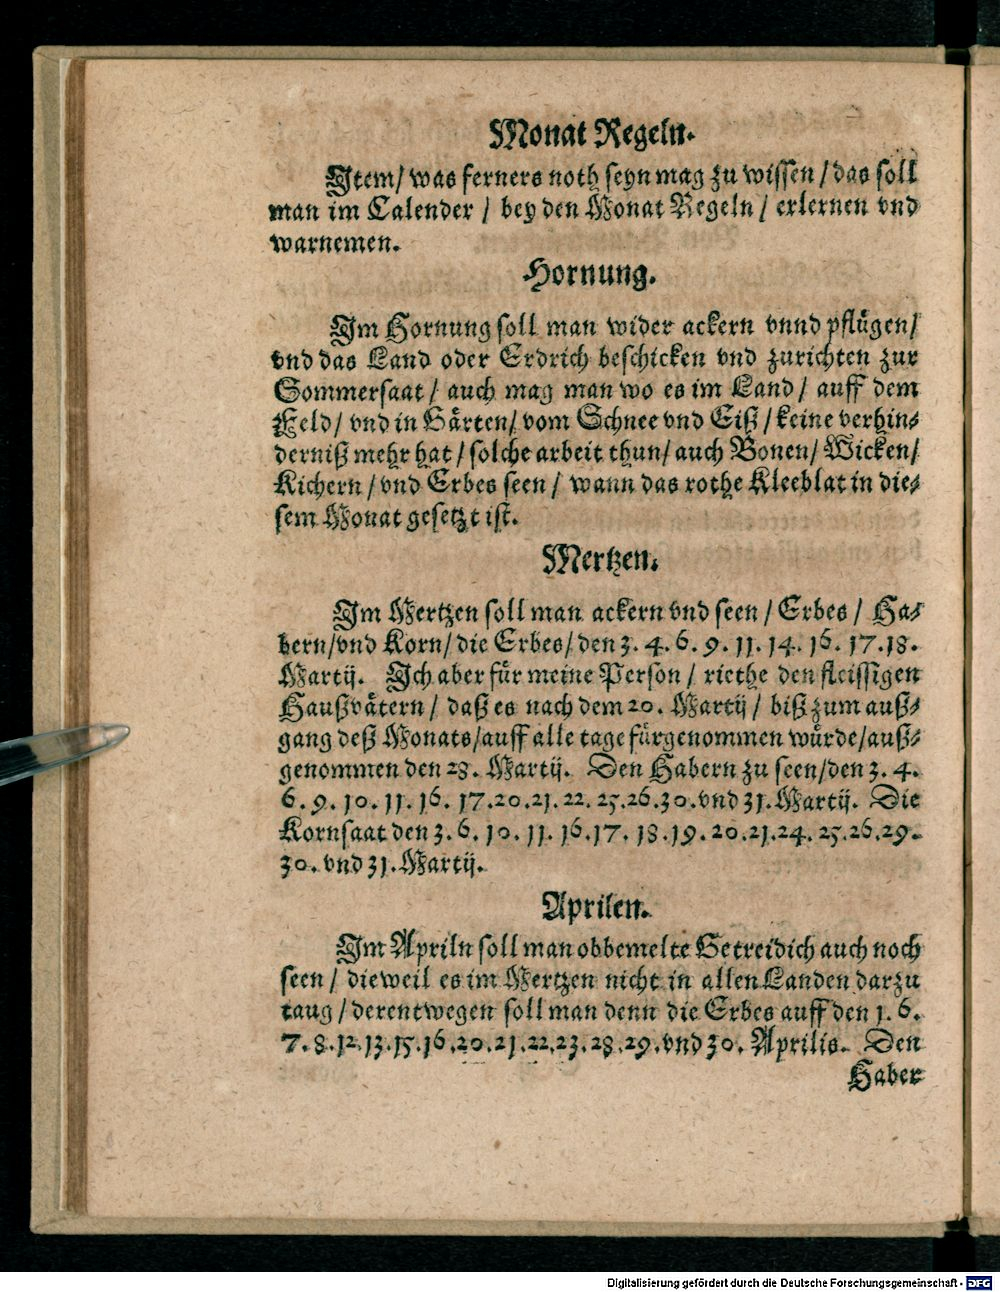 Monat Regeln.
Item/ was ferners noth seyn mag zu wissen / das soll
man im Calender / bey den Monat Regeln / erlernen vnd
warnemen.
Hornung.
Im Hornung soll man wider ackern vnnd pflügen/
vnd das Land oder Erdrich beschicken vnd zurichten zur
Sommersaat / auch mag man wo es im Land / auff dem
Feld / vnd in Gärten/ vom Schnee vnd Eiß / keine verhin-
derniß mehr hat / solche arbeit thun/ auch Bonen/ Wicken/
Kichern / vnd Erbes seen / wann das rothe Kleeblat in die-
sem Monat gesetzt ist.
Mertzen.
Im Mertzen soll man ackern vnd seen / Erbes / Ha-
bern/vnd Korn/ die Erbes/ den 3. 4. 6. 9. 11. 14. 16. 17.18.
Martij. Ich aber für meine Person / riethe den fleissigen
Haußvätern / daß es nach dem 20. Martij / biß zum auß-
gang deß Monats/auff alle tage fürgenommen würde/auß-
genommen den 28. Martij. Den Habern zu seen/den 3. 4.
6. 9. 10. 11. 16. 17.20.21. 22. 25.26.30.vnd 31. Martij. Die
Kornsaat den 3. 6. 10. 11. 16.17. 18.19. 20.21.24. 25.26.29.
30. vnd 31. Martij.
Aprilen.
Im Apriln soll man obbemelte Getreidich auch noch
seen / dieweil es im Mertzen nicht in allen Landen darzu
taug / derentwegen soll man denn die Erbes auff den 1. 6.
7. 8.12.13.15.16.20.21.22.23.28.29.vnd 30. Aprilis. Den
Haber
Digitalisierung gefördert durch die Deutsche Forschungsgemeinschaft - DFG